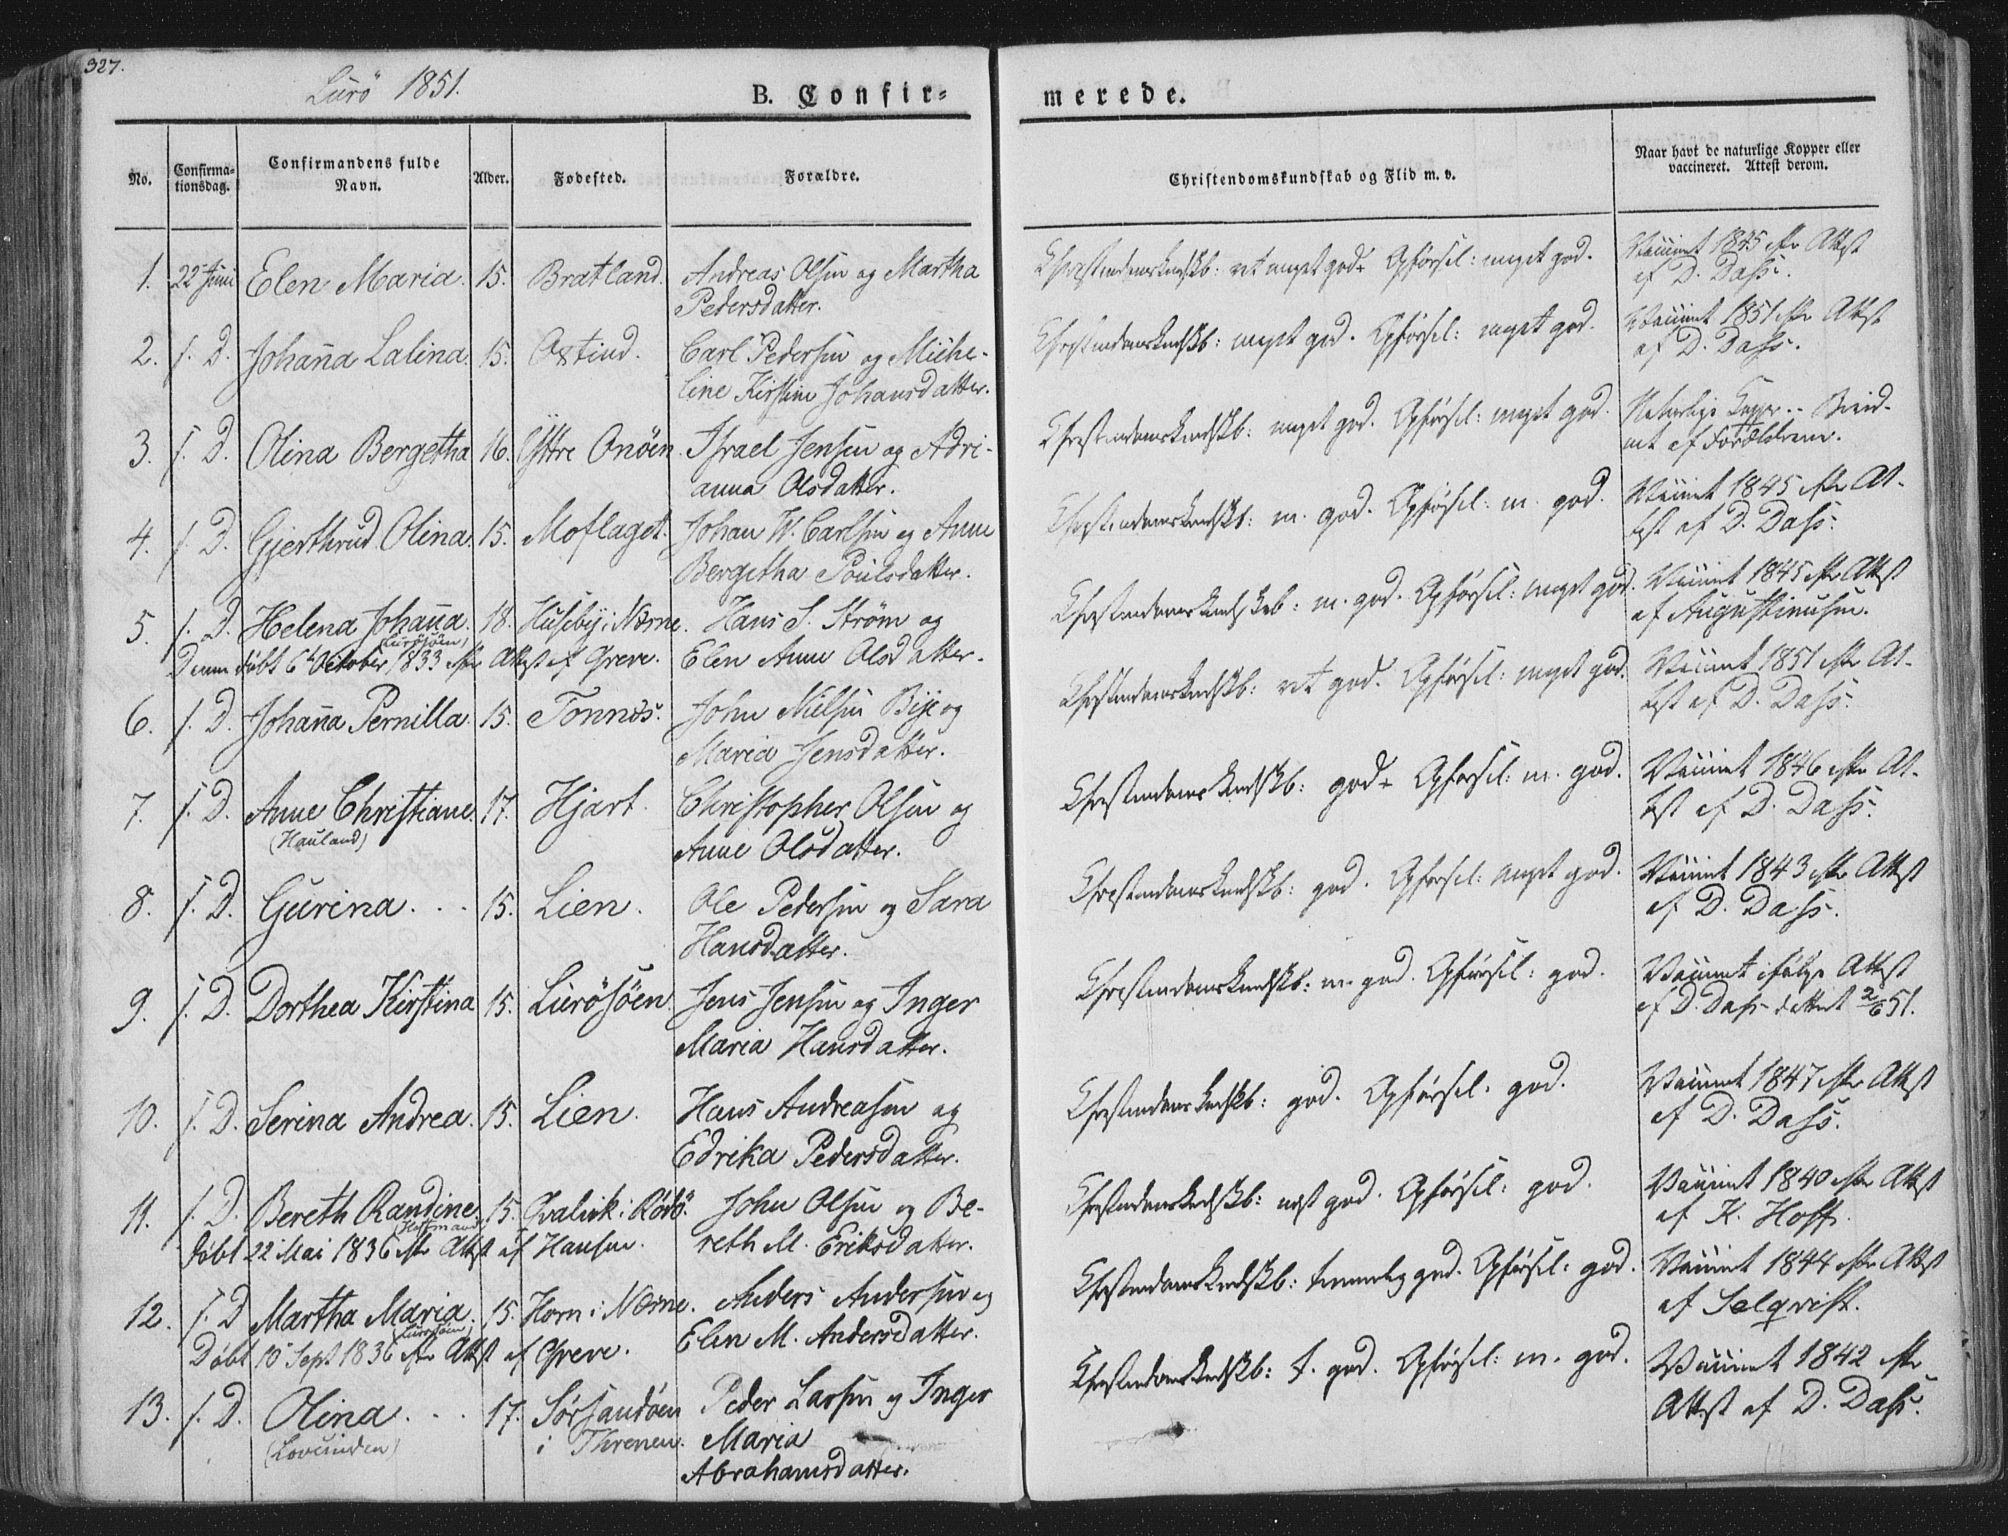 327.
Lurö 1851.
B. Confir-
merede.
No.
Confirma-
tionsdag.
Confirmandens fulde
Navn.
Alder.
Fodested.
Forældre.
Christendomskundskab og Flid m. v.
Naar havt de naturlige Kopper eller
vaccineret. Attest derom.
1. 22de Juni Elen Maria. 15. Bratland. Andreas Olsen og Martha
Pedersdatter.
Christendomskundskb: ret meget god. Opførsel: meget god.
Vaccinert 1845 efter Attest
af D. Dass.
2. s. D. Johan̄a Lalina. 15. Oxtind. Carl Pedersen og Miche-
line Kirstine Johansdatter.
Christendomskundskb: meget god. Opførsel: meget god.
Vaccinert 1851 efter Attest
af D. Dass.
3. s. D. Olina Bergetha 16. Yttre Onöen. Israel Jensen og Adri-
anna Olsdatter.
Christendomskundskb: meget god. Opførsel: meget god.
Naturlige Kopper. Bevid-
net af Forældrene.
4. s. D. Gjerthrud Olina. 15. Moflaget. Johan W. Carlsen og Anne
Bergetha Poulsdatter.
Christendomskundskb: m. god. Opførsel: m. god.
Vaccinert 1845 efter At-
test af D. Dass.
5. s. D. Helena Johan̄a. 18. Huseby i Næsne. Hans S. Strøm og
(Lurösöen)
Denne døbt 6te October 1833 efter Attest af Greve. Elen Anne Olsdatter.
Christendomskundskab: m. god. Opførsel: meget god.
Vaccinert 1845 efter Attest
af Augustinusen.
6. s. D. Johan̄a Pernilla. 15. Tonnes. John Nielsen Bye og
Maria Jensdatter.
Christendomskundskb: ret god. Opførsel: meget god.
Vaccinert 1851 efter At-
test af D. Dass.
7. s. D. Anne Christiane. 17. Hjart. Christopher Olsen og
(Hauland)
Anne Olsdatter.
Christendomskundskb: god. Opførsel: m. god.
Vaccinert 1846 efter At-
test af D. Dass.
8. s. D. Gurina. . . 15. Lien. Ole Pedersen og Sara
Hansdatter.
Christendomskundskb: god. Opførsel: meget god.
Vaccinert 1843 efter Attest
af D. Dass.
9. s. D. Dorthea Kirstina 15. Lurösöen. Jens Jensen og Inger
Maria Hansdatter.
Christendomskundskb: m. god. Opførsel: god.
Vaccinert ifølge Attest
af D. Dass dattert 2/6 51.
10. s. D. Serina Andrea. 15. Lien. Hans Andreasen og
Edrika Pedersdatter.
Christendomskundskb: god. Opførsel: god.
Vaccinert 1847 efter Attest
af D. Dass.
11. s. D. Bereth Randine. 15. Qvalvik i Rödö. John Olsen og Be-
døbt 22 Mai 1836 efter Attest af Hansen. reth M. Eriksdatter.
Christendomskundskb: mest god. Opførsel: god.
Vaccinert 1840 efter Attest
af K. Hoff.
12. s. D. Martha Maria. 15. Horn i Næsne. Anders Andersen og
(Lurösöen)
Døbt 10de Sept 1836 efter Attest af Greve. Elen M. Andersdatter.
Christendomskundskb: temmelig god. Opførsel: god.
Vaccinert 1844 efter Attest
af Selqvist.
13. s. D. Olina. . . 17. Sørsandøen Peder Larsen og Inger
(Lovunden)
i Threnen. Maria
Abrahamsdatter.
Christendomskundskb: t. god. Opførsel: m. god.
Vaccinert 1842 efter
Attest af D. Dass.